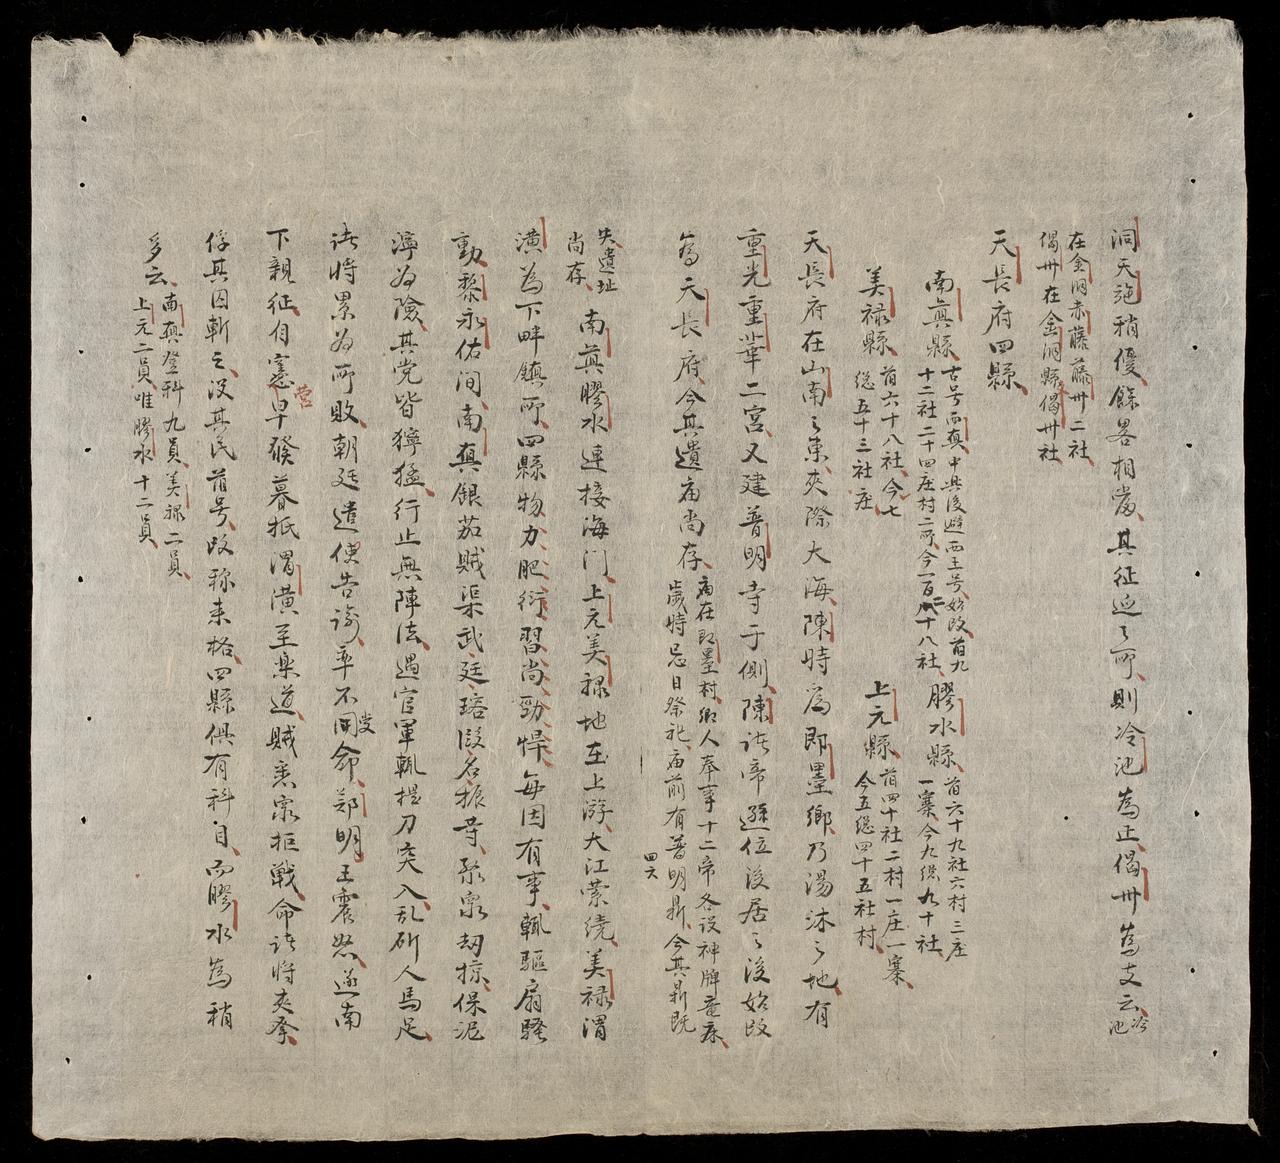 洞天施稍優餘畧相當其征巡之所則冷池為正偈卅為支云冷池
在金洞赤藤藤卅二社
偈卅在金洞縣偈卅社
天長府四縣
南真縣古号西真中興後避西王号始改首九
十二社二十四庄村二所今一百二十八社
膠水縣首六十九社六村三庄
一寨今九總九十社
美祿縣首六十八社今七
總五十三社庄
上元縣首四十社二村一庄一寨
今五總四十五社村
天長府在山南之東夾際大海陳時為即墨鄉乃湯沐之地有
重光重華二宮又建普明寺于側陳諸帝遜位後居之後始改
為天長府今其遺庙尚存庙在即墨村鄉人奉事十二帝各設神牌竜床
歲時忌日祭祀庙前有普明鼎今其鼎既
失遺址
尚存
南真膠水連接海门上元美祿地在上游大江縈繞美祿渭
潢為下畔鎮所四縣物力肥衍習尚勁悍每因有事輒驅扇騷
動黎永佑间南真銀茄賊渠武廷瑢假名振㝵聚衆刼掠保泥
濘為險其党皆獰猛行止無陣法遇官軍輒提刀突入乱斫人馬足
諸將累為所敗朝廷遣使告諭率不受命鄭明王震怒遂南
下親征自憲营早發暮抵渭潢至樂道賊悉衆拒戰命諸將夾擊
俘其囚斬之没其民首号改称耒格四縣俱有科目而膠水為稍
多云南真登科九員美祿二員
上元二員唯膠水十二員
四六